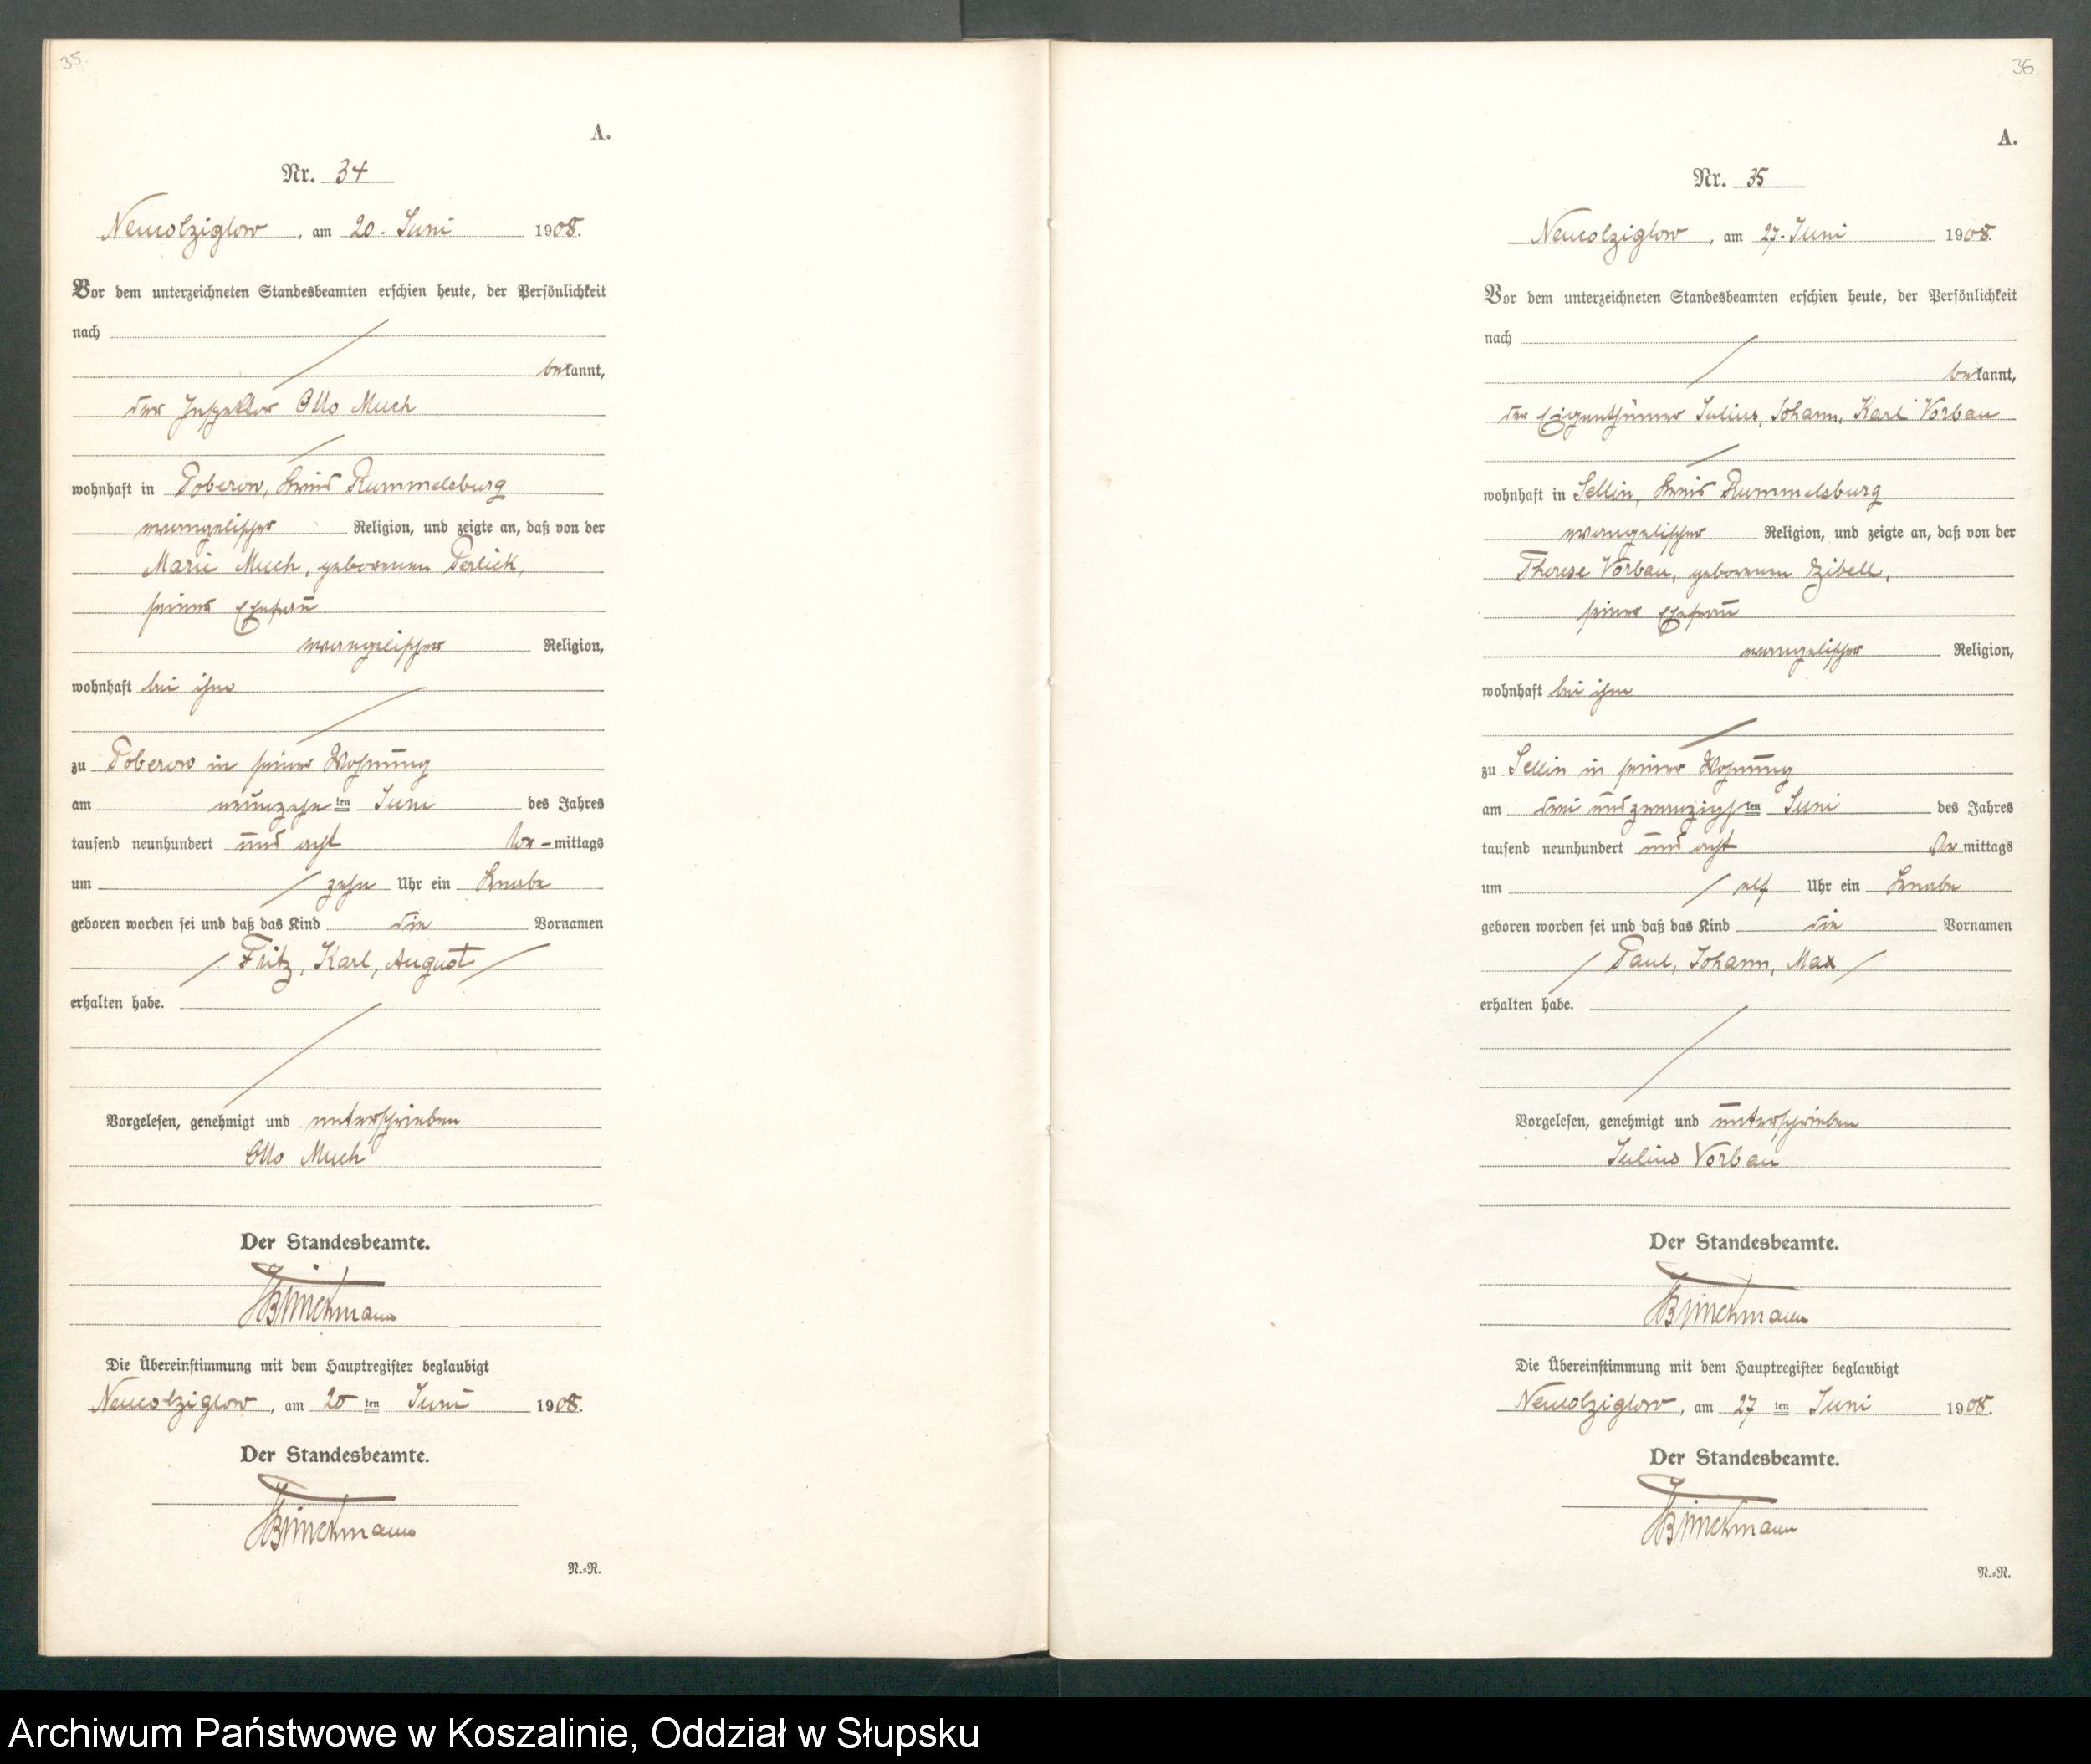 35.
A.
Nr. 34
Neucolziglow, am 20. Juni 1908.
Vor dem unterzeichneten Standesbeamten erschien heute, der Persönlichkeit
nach
bekannt,
der Inspektor Otto Much
wohnhaft in Poberow, Kreis Rummelsburg
evangelischer Religion, und zeigte an, daß von der
Marie Much, geborenen Perlick,
seiner Ehefrau
evangelischer Religion,
wohnhaft bei ihm
zu Poberow in seiner Wohnung
am neunzehnten Juni des Jahres
tausend neunhundert und acht Vor-mittags
um zehn Uhr ein Knabe
geboren worden sei und daß das Kind die Vornamen
Fritz, Karl, August
erhalten habe.
Vorgelesen, genehmigt und unterschrieben
Otto Much
Der Standesbeamte.
Brinckmann
Die Übereinstimmung mit dem Hauptregister beglaubigt
Neucolziglow, am 20 ten Juni 1908.
Der Standesbeamte.
Brinckmann
N.=R.
36.
A.
Nr. 35
Neucolziglow, am 27. Juni 1908.
Vor dem unterzeichneten Standesbeamten erschien heute, der Persönlichkeit
nach
bekannt,
der Eigenthümer Julius, Johann, Karl Vorbau
wohnhaft in Sellin, Kreis Rummelsburg
evangelischer Religion, und zeigte an, daß von der
Therese Vorbau, geborenen Czibell,
seiner Ehefrau
evangelischer Religion,
wohnhaft bei ihm
zu Sellin in seiner Wohnung
am drei und zwanzigsten Juni des Jahres
tausend neunhundert und acht Vor mittags
um elf Uhr ein Knabe
geboren worden sei und daß das Kind die Vornamen
Paul, Johann, Max
erhalten habe.
Vorgelesen, genehmigt und unterschrieben
Julius Vorbau
Der Standesbeamte.
Brinckmann
Die Übereinstimmung mit dem Hauptregister beglaubigt
Neucolziglow, am 27 ten Juni 1908.
Der Standesbeamte.
Brinckmann
N.=R.
Archiwum Państwowe w Koszalinie, Oddział w Słupsku